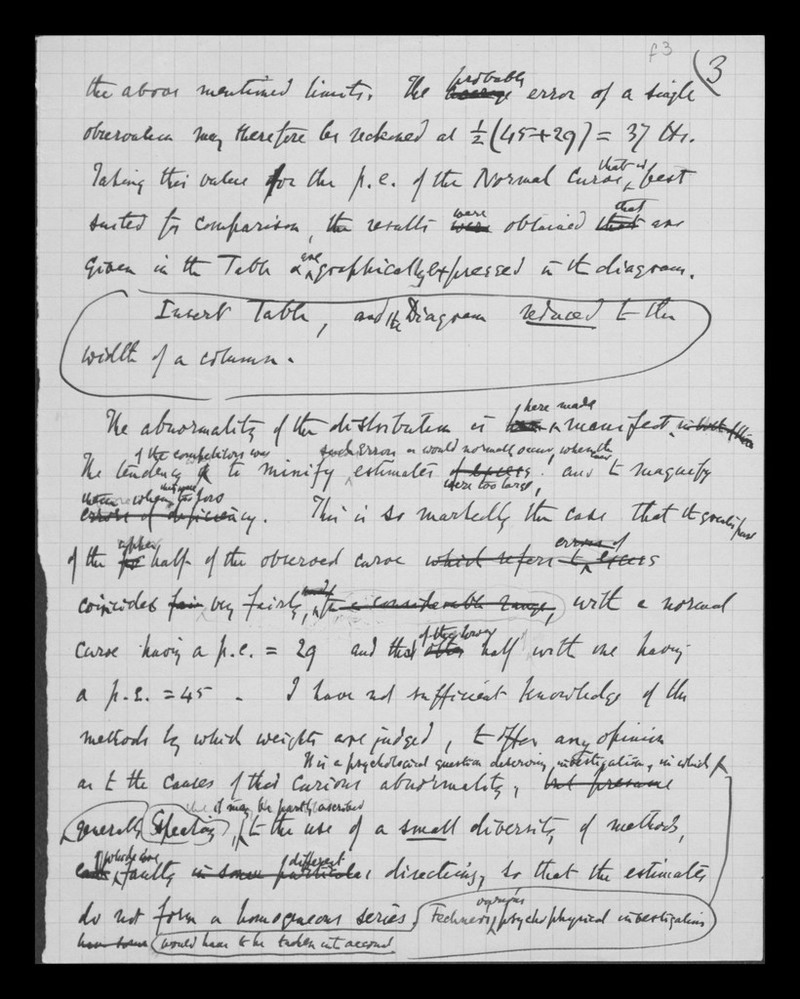 f 3
3
the above mentioned limits. The probable average error of a single
observation may therefore be reckoned at ½(45+29) = 37 lbs.
Taking this value for the p.e. of the Normal Curve that is best
suited for comparison, the results were were obtained that that are
given in the Table & are graphically expressed in the diagram.
Insert Table, and the Diagram reduced to the
width of a column.
The abnormality of the distribution is here made manifest
of the competitors was such errors as would normally occur, when the
The tendency to minify estimates of excess and to magnify
were too large,
errors of deficiency. This is so markedly the case that the greater part
of the upper half of the observed curve which refers to errors of excess
coincides fair very fairly, to a considerable range, with a normal
curve having a p.e. = 29 and that of the lower other half with one having
a p.e. = 45 . I have not sufficient knowledge of the
methods by which weights are judged, to offer any opinion
It is a psychological question deserving investigation, in which
as to the causes of that curious abnormality, but presume
it may be partly ascribed
generally speaking, to the use of a small diversity of methods,
faulty in some particular different directions, so that the estimates
do not form a homogeneous series. psychophysical investigations
would have to be taken into account